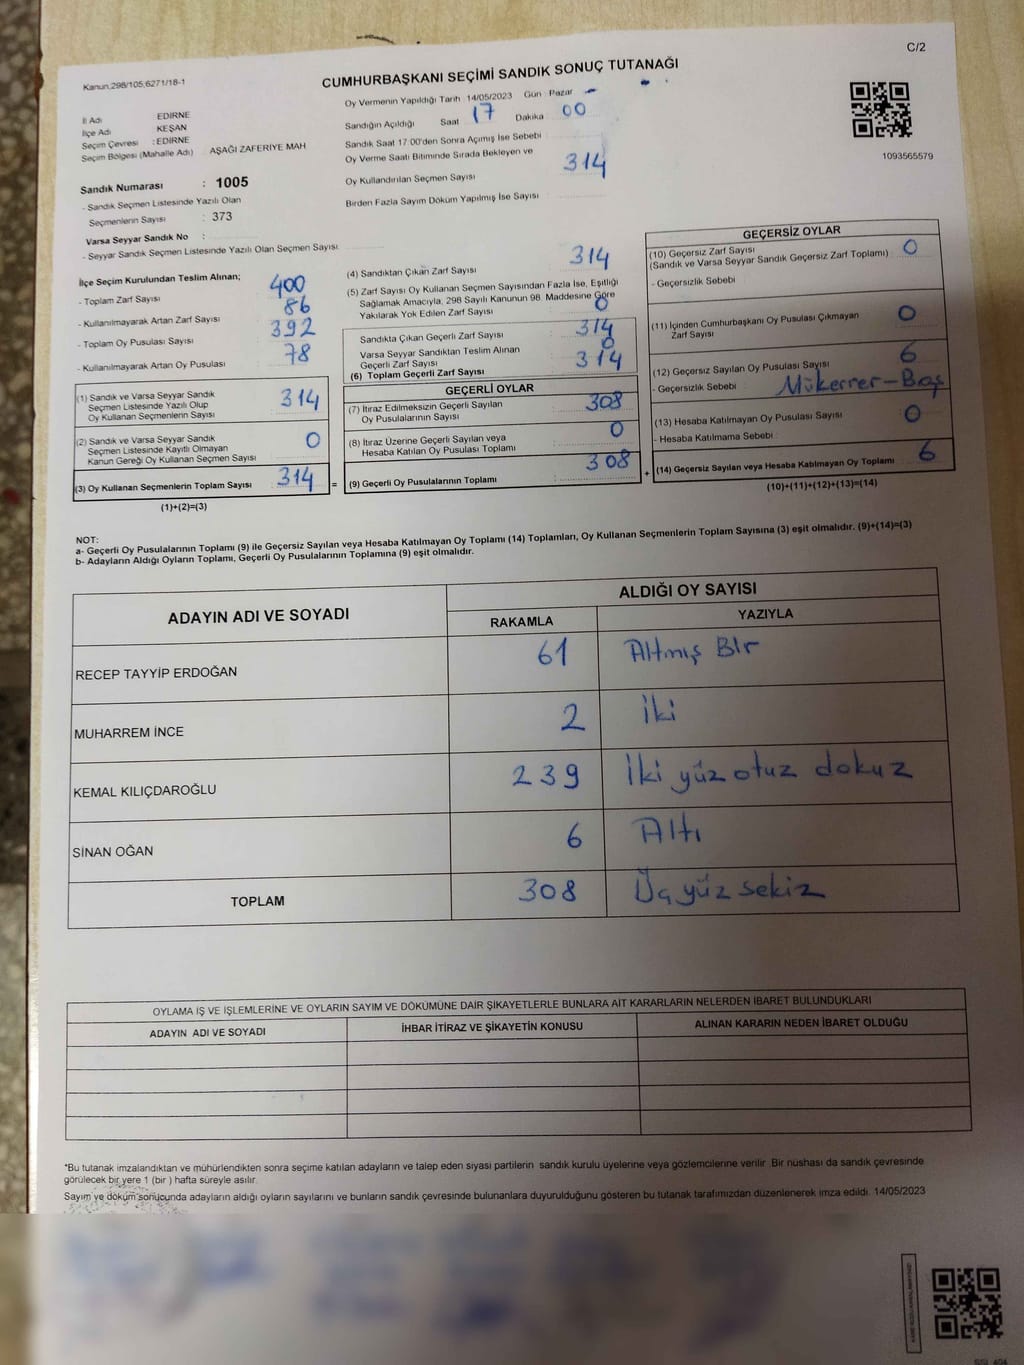 C/2
Kanun,298/105,6271/18-1
CUMHURBAŞKANI SEÇİMİ SANDIK SONUÇ TUTANAĞI
İl Adı EDİRNE
İlçe Adı KEŞAN
Seçim Çevresi : EDİRNE
Seçim Bölgesi (Mahalle Adı) AŞAĞI ZAFERİYE MAH
Sandık Numarası : 1005
- Sandık Seçmen Listesinde Yazılı Olan
Seçmenlerin Sayısı : 373
Varsa Seyyar Sandık No :
- Seyyar Sandık Seçmen Listesinde Yazılı Olan Seçmen Sayısı
Oy Vermenin Yapıldığı Tarih 14/05/2023 Gün Pazar
Sandığın Açıldığı Saat 17 Dakika 00
Sandık Saat 17:00'den Sonra Açımış İse Sebebi
Oy Verme Saati Bitiminde Sırada Bekleyen ve
Oy Kullandırılan Seçmen Sayısı 314
Birden Fazla Sayım Döküm Yapılmış İse Sayısı
1093565579
İlçe Seçim Kurulundan Teslim Alınan;
- Toplam Zarf Sayısı 400
- Kullanılmayarak Artan Zarf Sayısı 86
- Toplam Oy Pusulası Sayısı 392
- Kullanılmayarak Artan Oy Pusulası 78
(1) Sandık ve Varsa Seyyar Sandık
Seçmen Listesinde Yazılı Olup
Oy Kullanan Seçmenlerin Sayısı 314
(2) Sandık ve Varsa Seyyar Sandık
Seçmen Listesinde Kayıtlı Olmayan
Kanun Gereği Oy Kullanan Seçmen Sayısı 0
(3) Oy Kullanan Seçmenlerin Toplam Sayısı 314 =
(1)+(2)=(3)
(4) Sandıktan Çıkan Zarf Sayısı 314
(5) Zarf Sayısı Oy Kullanan Seçmen Sayısından Fazla İse, Eşitliği
Sağlamak Amacıyla, 298 Sayılı Kanunun 98. Maddesine Göre
Yakılarak Yok Edilen Zarf Sayısı 0
Sandıkta Çıkan Geçerli Zarf Sayısı 314
Varsa Seyyar Sandıktan Teslim Alınan
Geçerli Zarf Sayısı 0
(6) Toplam Geçerli Zarf Sayısı 314
GEÇERLİ OYLAR
(7) İtiraz Edilmeksizin Geçerli Sayılan
Oy Pusulalarının Sayısı 308
(8) İtiraz Üzerine Geçerli Sayılan veya
Hesaba Katılan Oy Pusulası Toplamı 0
(9) Geçerli Oy Pusulalarının Toplamı 308 +
GEÇERSİZ OYLAR
(10) Geçersiz Zarf Sayısı 0
(Sandık ve Varsa Seyyar Sandık Geçersiz Zarf Toplamı)
- Geçersizlik Sebebi
(11) İçinden Cumhurbaşkanı Oy Pusulası Çıkmayan
Zarf Sayısı 0
(12) Geçersiz Sayılan Oy Pusulası Sayısı 6
- Geçersizlik Sebebi Mükerrer-Boş
(13) Hesaba Katılmayan Oy Pusulası Sayısı 0
- Hesaba Katılmama Sebebi
(14) Geçersiz Sayılan veya Hesaba Katılmayan Oy Toplamı 6
(10)+(11)+(12)+(13)=(14)
NOT:
a- Geçerli Oy Pusulalarının Toplamı (9) ile Geçersiz Sayılan veya Hesaba Katılmayan Oy Toplamı (14) Toplamları, Oy Kullanan Seçmenlerin Toplam Sayısına (3) eşit olmalıdır. (9)+(14)=(3)
b- Adayların Aldığı Oyların Toplamı, Geçerli Oy Pusulalarının Toplamına (9) eşit olmalıdır.
ADAYIN ADI VE SOYADI
ALDIĞI OY SAYISI
RAKAMLA YAZIYLA
RECEP TAYYİP ERDOĞAN 61 Altmış Bir
MUHARREM İNCE 2 İki
KEMAL KILIÇDAROĞLU 239 İki yüz otuz dokuz
SİNAN OĞAN 6 Altı
TOPLAM 308 Üç yüz sekiz
OYLAMA İŞ VE İŞLEMLERİNE VE OYLARIN SAYIM VE DÖKÜMÜNE DAİR ŞİKAYETLERLE BUNLARA AİT KARARLARIN NELERDEN İBARET BULUNDUKLARI
ADAYIN ADI VE SOYADI İHBAR İTİRAZ VE ŞİKAYETİN KONUSU ALINAN KARARIN NEDEN İBARET OLDUĞU
*Bu tutanak imzalandıktan ve mühürlendikten sonra seçime katılan adayların ve talep eden siyasi partilerin sandık kurulu üyelerine veya gözlemcilerine verilir. Bir nüshası da sandık çevresinde
görülecek bir yere 1 (bir) hafta süreyle asılır.
Sayım ve döküm sonucunda adayların aldığı oyların sayılarını ve bunların sandık çevresinde bulunanlara duyurulduğunu gösteren bu tutanak tarafımızdan düzenlenerek imza edildi. 14/05/2023